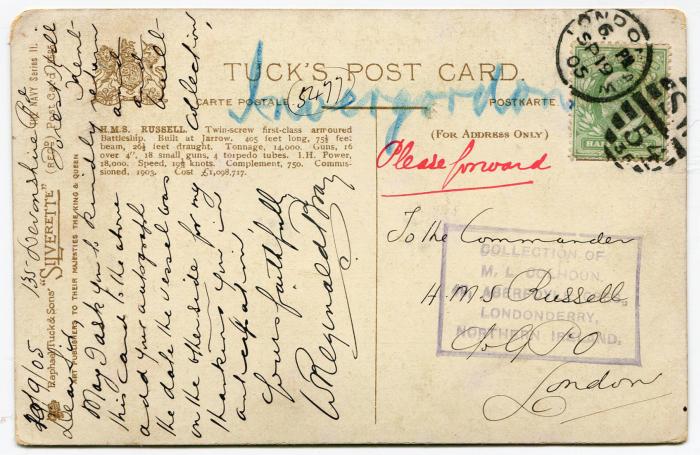 TUCK'S POST CARD.
CARTE POSTALE
POSTKARTE
(FOR ADDRESS ONLY)
Invergordon
5477
Please forward
H.M.S. RUSSELL. Twin-screw first-class armoured
Battleship. Built at Jarrow. 405 feet long, 75½ feet
beam, 26½ feet draught. Tonnage, 14,000. Guns, 16
over 4", 18 small guns, 4 torpedo tubes. I.H. Power,
18,000. Speed, 19½ knots. Complement, 750. Commis-
sioned, 1903. Cost £1,098,717.
To the Commander
H.M.S Russell
c/o G.P.O
London
COLLECTION OF
M. L. COLHOUN
LONDONDERRY,
NORTHERN IRELAND.
LONDON
6 PM
SP 19
05
Raphael Tuck & Sons'
"SILVERETTE"
ART PUBLISHERS TO THEIR MAJESTIES THE KING & QUEEN
THE NAVY Series II.
135 Devonshire Rd
Forest Hill
19/9/05
Dear Sir
May I ask you to kindly return
this card to the above and
add your autograph and
the date the vessel was built
on the other side for my collection
thanking you in
anticipation
Yours faithfully
W Reginald Bray